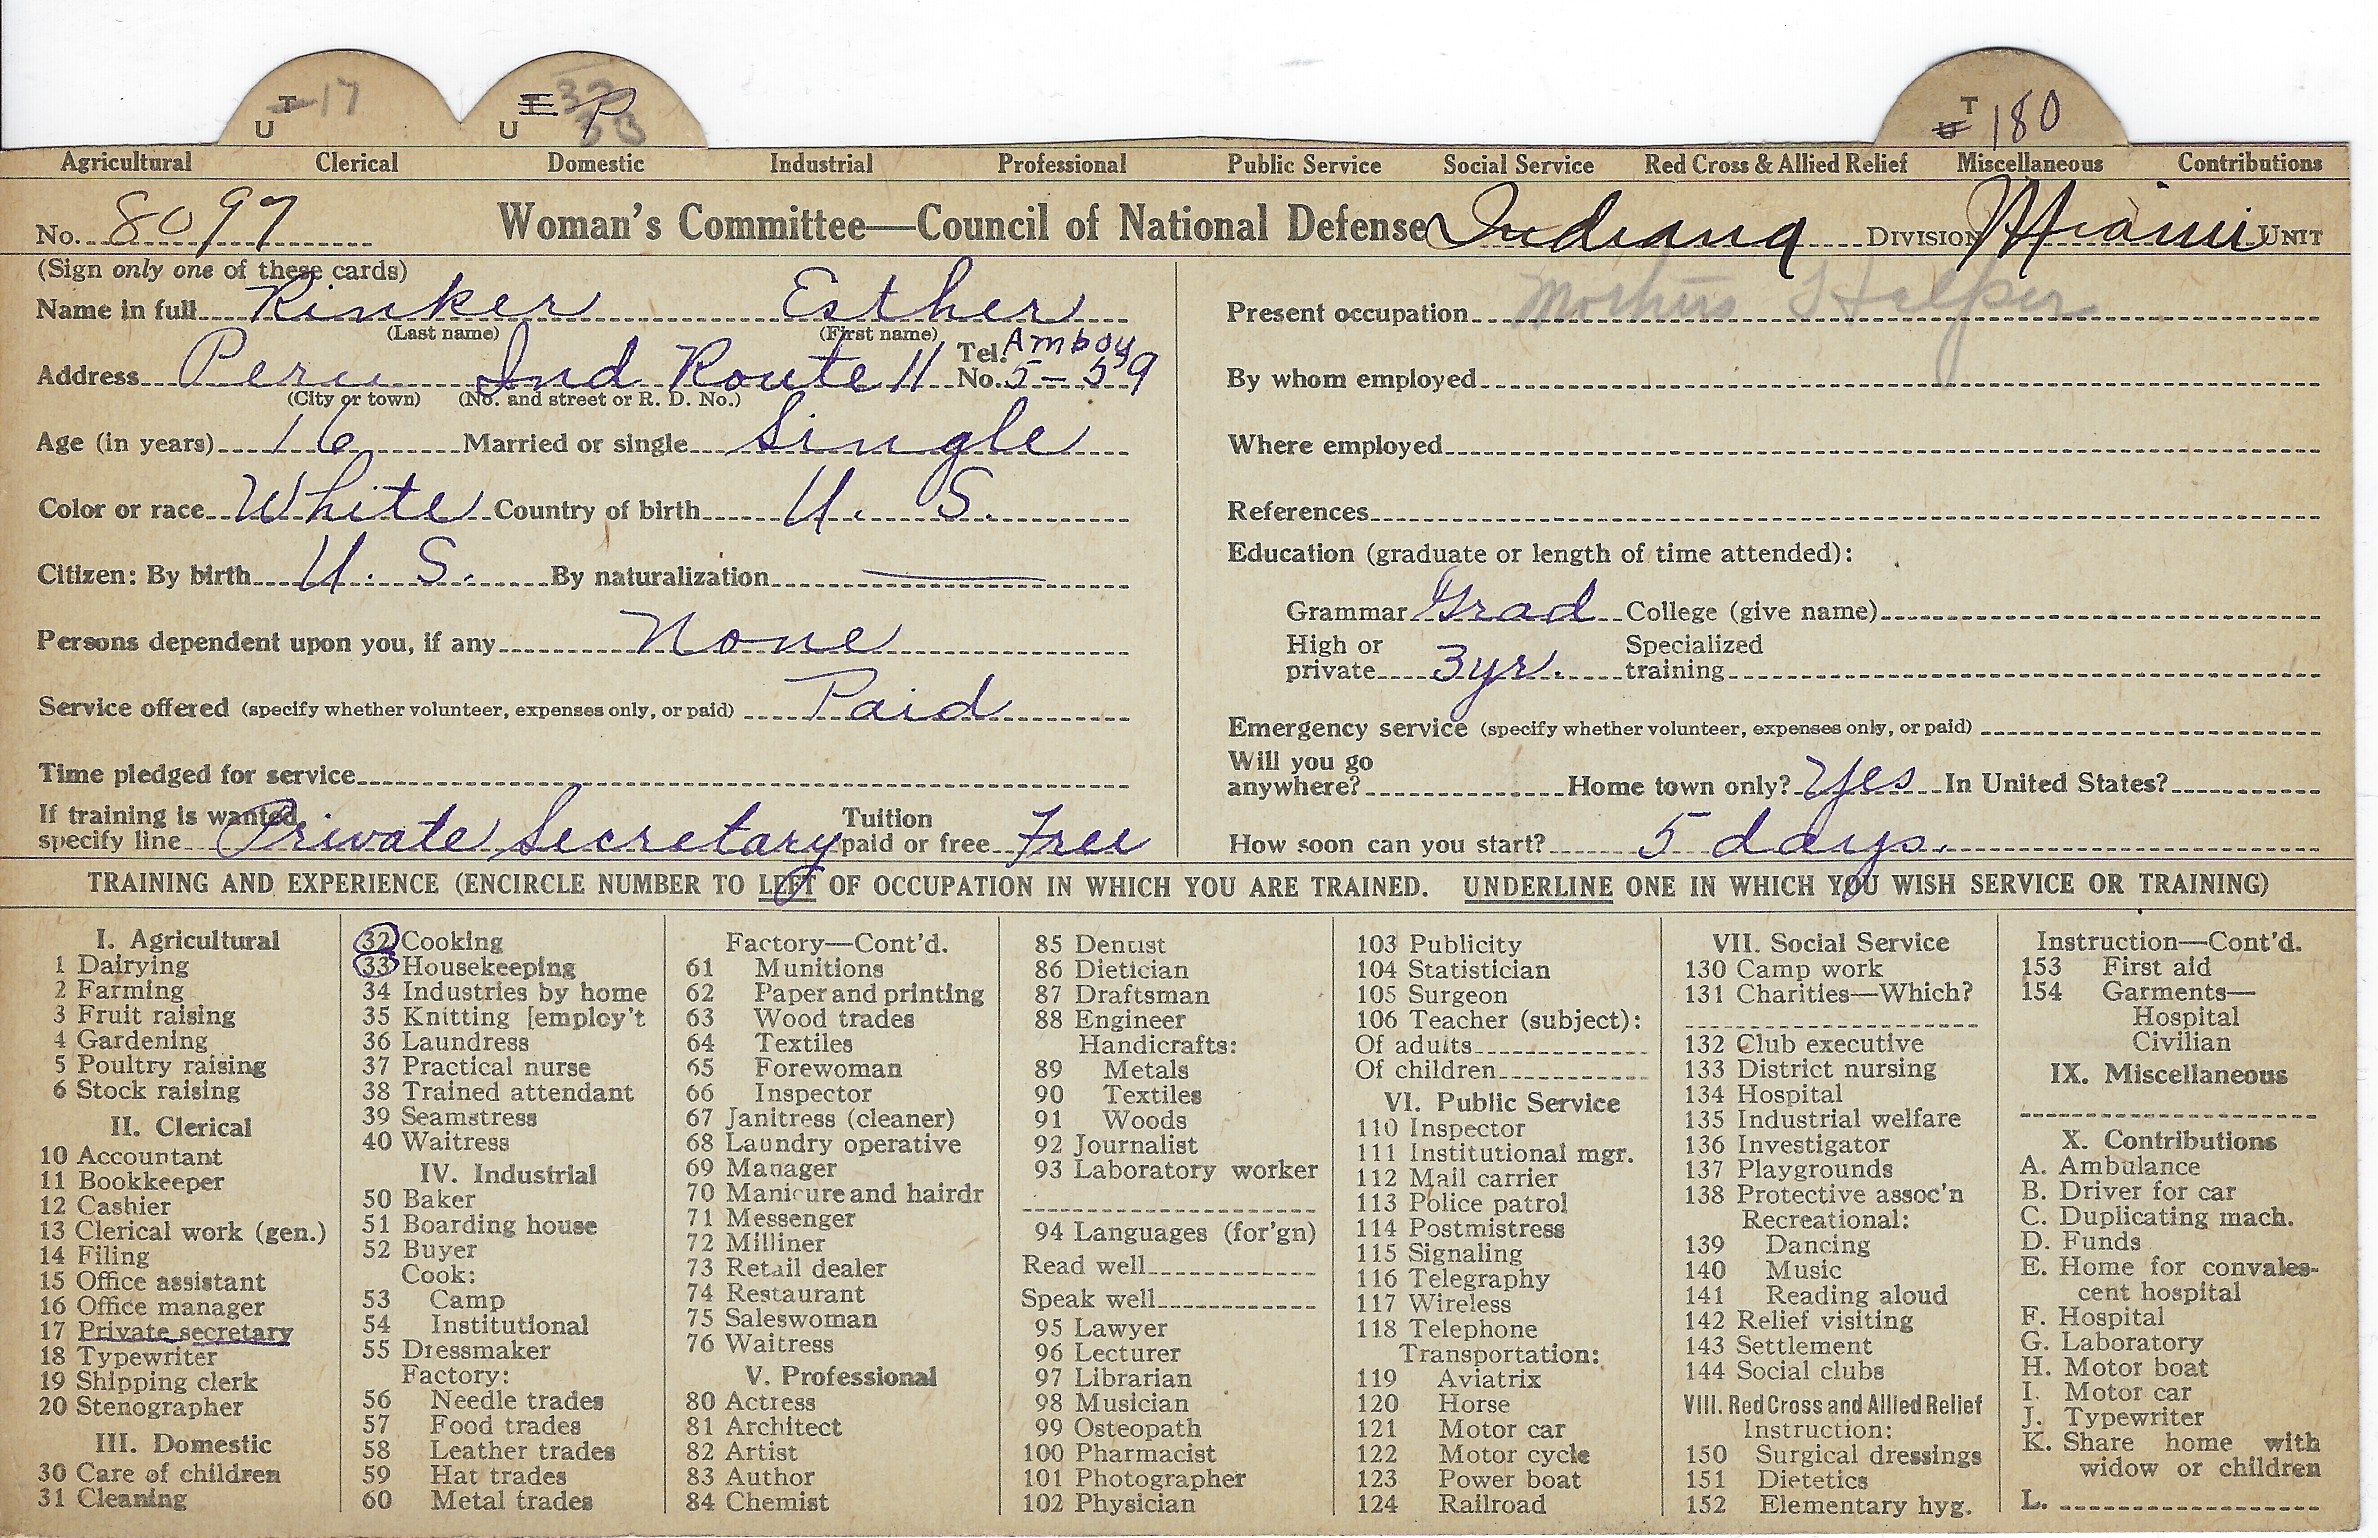 T 17
U
T 32 P
U 33
T 180
U
Agricultural Clerical Domestic Industrial Professional Public Service Social Service Red Cross & Allied Relief Miscellaneous Contributions
No. 8097 Woman's Committee—Council of National Defense Indiana DIVISION Miami UNIT
(Sign only one of these cards)
Name in full Rinker Esther
(Last name) (First name)
Address Peru Ind Route 11 Tel. No. Amboy 5-59
(City or town) (No. and street or R. D. No.)
Age (in years) 16 Married or single Single
Color or race White Country of birth U. S.
Citizen: By birth U. S. By naturalization —
Persons dependent upon you, if any None
Service offered (specify whether volunteer, expenses only, or paid) Paid
Time pledged for service
If training is wanted, specify line Private Secretary Tuition paid or free Free
Present occupation Mothers Helper
By whom employed
Where employed
References
Education (graduate or length of time attended):
Grammar Grad College (give name)
High or private 3 yr. Specialized training
Emergency service (specify whether volunteer, expenses only, or paid)
Will you go anywhere? Home town only? Yes In United States?
How soon can you start? 5 days.
TRAINING AND EXPERIENCE (ENCIRCLE NUMBER TO LEFT OF OCCUPATION IN WHICH YOU ARE TRAINED. UNDERLINE ONE IN WHICH YOU WISH SERVICE OR TRAINING)
I. Agricultural
1 Dairying
2 Farming
3 Fruit raising
4 Gardening
5 Poultry raising
6 Stock raising
II. Clerical
10 Accountant
11 Bookkeeper
12 Cashier
13 Clerical work (gen.)
14 Filing
15 Office assistant
16 Office manager
17 Private secretary
18 Typewriter
19 Shipping clerk
20 Stenographer
III. Domestic
30 Care of children
31 Cleaning
32 Cooking
33 Housekeeping
34 Industries by home
35 Knitting [employ't
36 Laundress
37 Practical nurse
38 Trained attendant
39 Seamstress
40 Waitress
IV. Industrial
50 Baker
51 Boarding house
52 Buyer
Cook:
53 Camp
54 Institutional
55 Dressmaker
Factory:
56 Needle trades
57 Food trades
58 Leather trades
59 Hat trades
60 Metal trades
Factory—Cont'd.
61 Munitions
62 Paper and printing
63 Wood trades
64 Textiles
65 Forewoman
66 Inspector
67 Janitress (cleaner)
68 Laundry operative
69 Manager
70 Manicure and hairdr
71 Messenger
72 Milliner
73 Retail dealer
74 Restaurant
75 Saleswoman
76 Waitress
V. Professional
80 Actress
81 Architect
82 Artist
83 Author
84 Chemist
85 Dentist
86 Dietician
87 Draftsman
88 Engineer
Handicrafts:
89 Metals
90 Textiles
91 Woods
92 Journalist
93 Laboratory worker
94 Languages (for'gn)
Read well
Speak well
95 Lawyer
96 Lecturer
97 Librarian
98 Musician
99 Osteopath
100 Pharmacist
101 Photographer
102 Physician
103 Publicity
104 Statistician
105 Surgeon
106 Teacher (subject):
Of adults
Of children
VI. Public Service
110 Inspector
111 Institutional mgr.
112 Mail carrier
113 Police patrol
114 Postmistress
115 Signaling
116 Telegraphy
117 Wireless
118 Telephone
Transportation:
119 Aviatrix
120 Horse
121 Motor car
122 Motor cycle
123 Power boat
124 Railroad
VII. Social Service
130 Camp work
131 Charities—Which?
132 Club executive
133 District nursing
134 Hospital
135 Industrial welfare
136 Investigator
137 Playgrounds
138 Protective assoc'n
Recreational:
139 Dancing
140 Music
141 Reading aloud
142 Relief visiting
143 Settlement
144 Social clubs
VIII. Red Cross and Allied Relief
Instruction:
150 Surgical dressings
151 Dietetics
152 Elementary hyg.
Instruction—Cont'd.
153 First aid
154 Garments—
Hospital
Civilian
IX. Miscellaneous
X. Contributions
A. Ambulance
B. Driver for car
C. Duplicating mach.
D. Funds
E. Home for convales-
cent hospital
F. Hospital
G. Laboratory
H. Motor boat
I. Motor car
J. Typewriter
K. Share home with
widow or children
L.